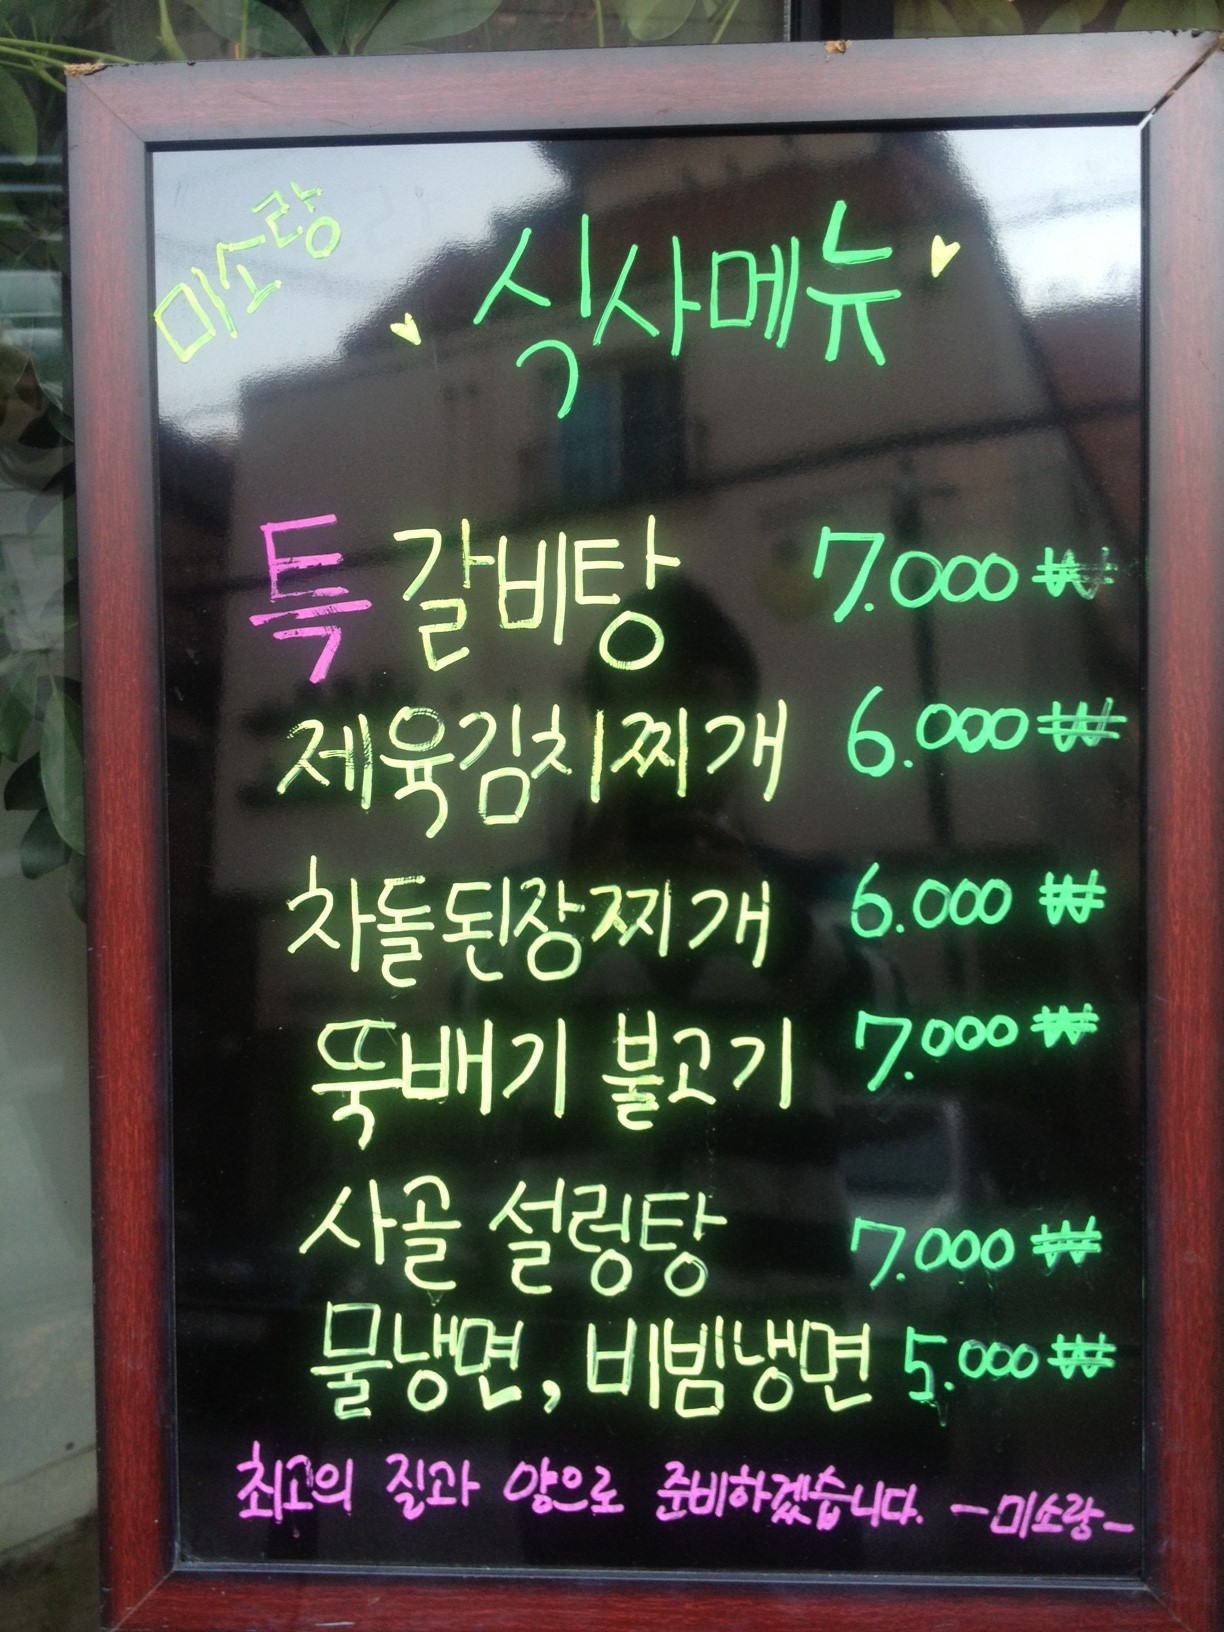 미소랑
식사메뉴
특 갈비탕 7.000₩
제육김치찌개 6.000₩
차돌된장찌개 6.000₩
뚝배기 불고기 7.000₩
사골 설렁탕 7.000₩
물냉면, 비빔냉면 5.000₩
최고의 질과 양으로 준비하겠습니다. -미소랑-